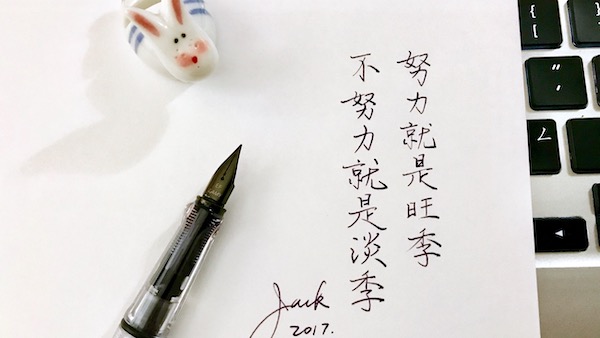 努力就是旺季
不努力就是淡季
Jack
2017.